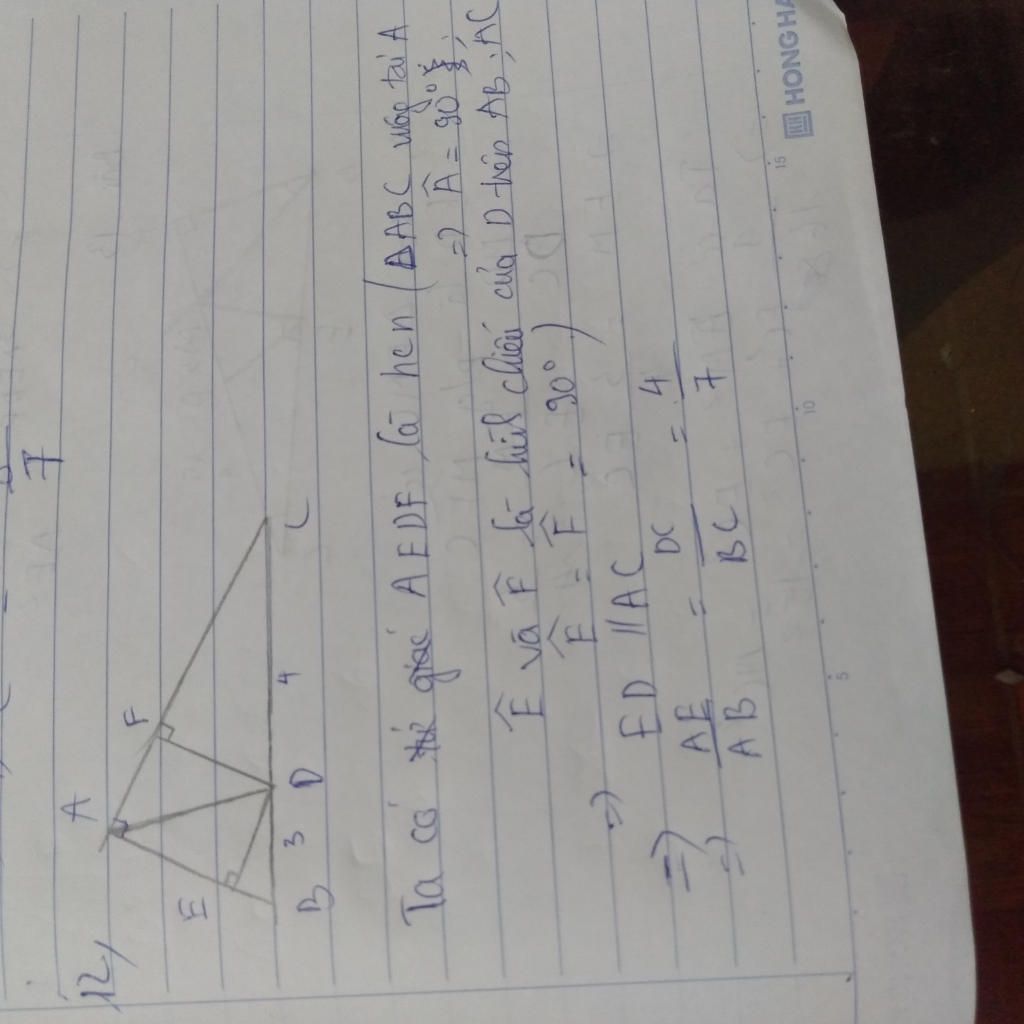 7
12/
A
F
E
B 3 D 4 C
Ta có tứ giác AEDF là hcn (ΔABC vuông tại A
=> Â = 90°;
Ê và F̂ là hình chiếu của D trên AB; AC
Ê = F̂ = 90°)
=> ED // AC
=> AE = DC = 4
=> AB BC 7
5 10 15
HONG HA